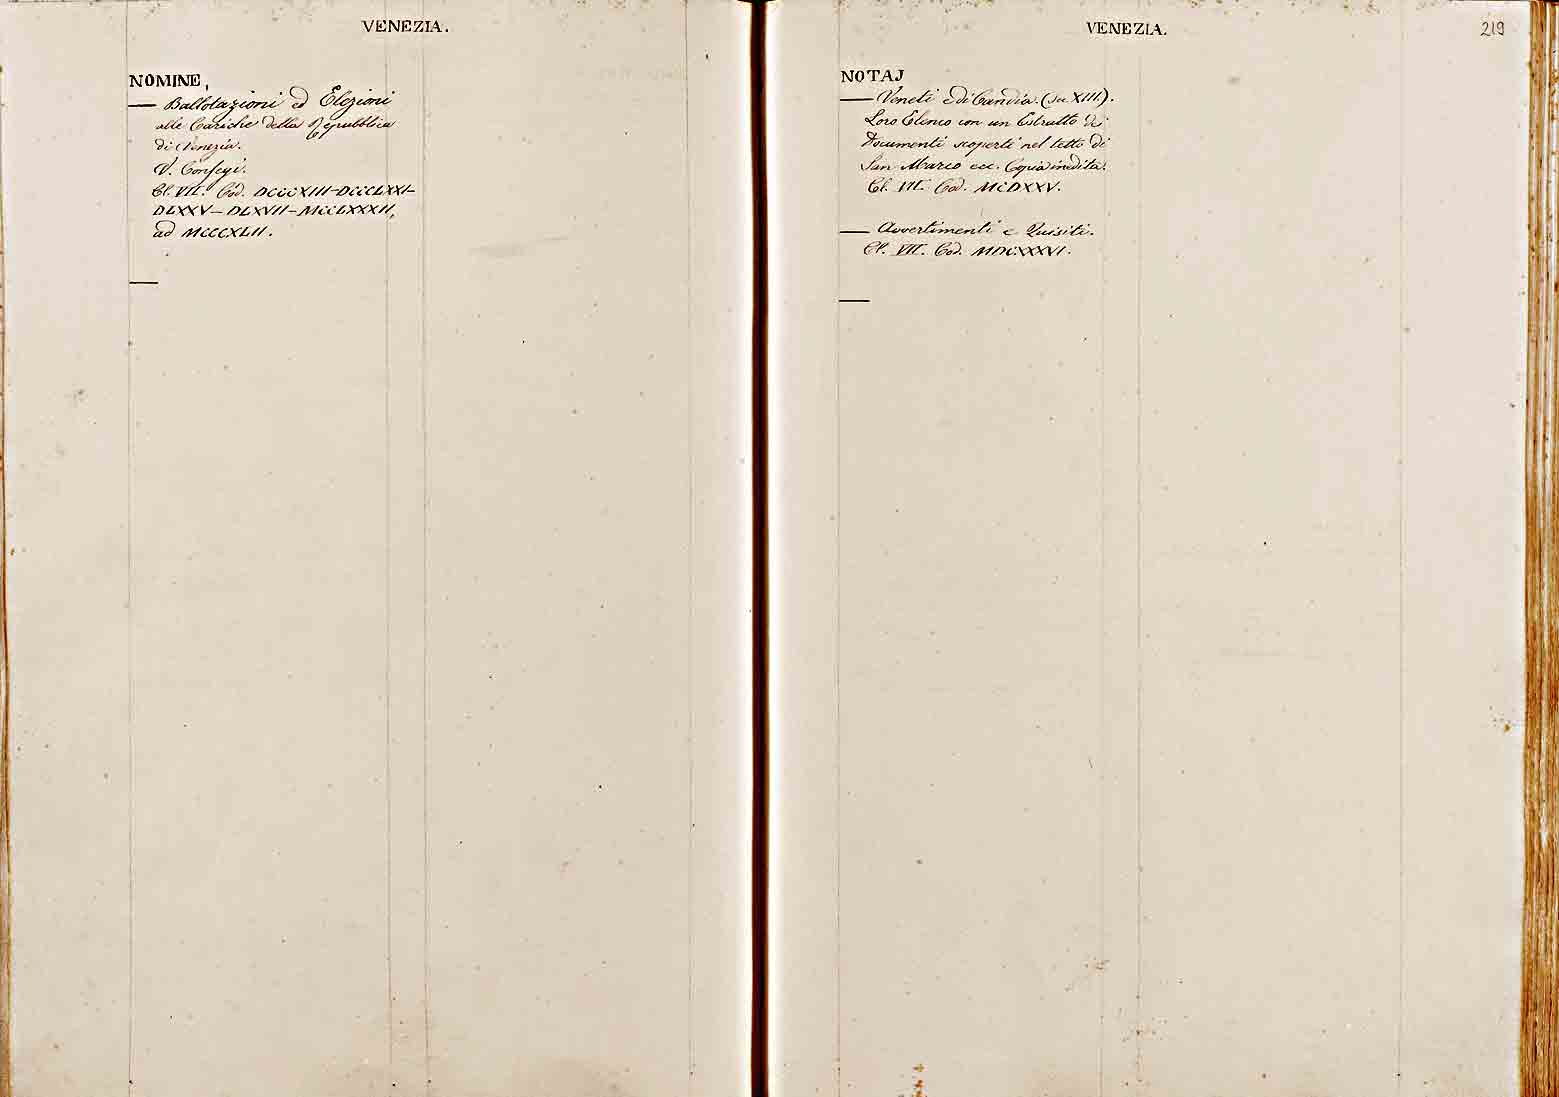 VENEZIA.
NOMINE,
— Ballotazioni ed Elezioni
alle Cariche della Repubblica
di Venezia.
V. Consegi.
Cl. VII. Cod. DCCCXIII–DCCCLXXI–
DLXXV–DLXVII–MCCLXXXII,
ad MCCCXLII.
VENEZIA.
219
NOTAJ
— Veneti e di Candia. (Sec XIII).
Loro Elenco con un Estratto dei
Documenti scoperti nel tetto di
San Marco ecc. Copia inedita.
Cl. VII. Cod. MCDXXV.
— Avvertimenti e Quisiti.
Cl. VII. Cod. MDCXXXVI.